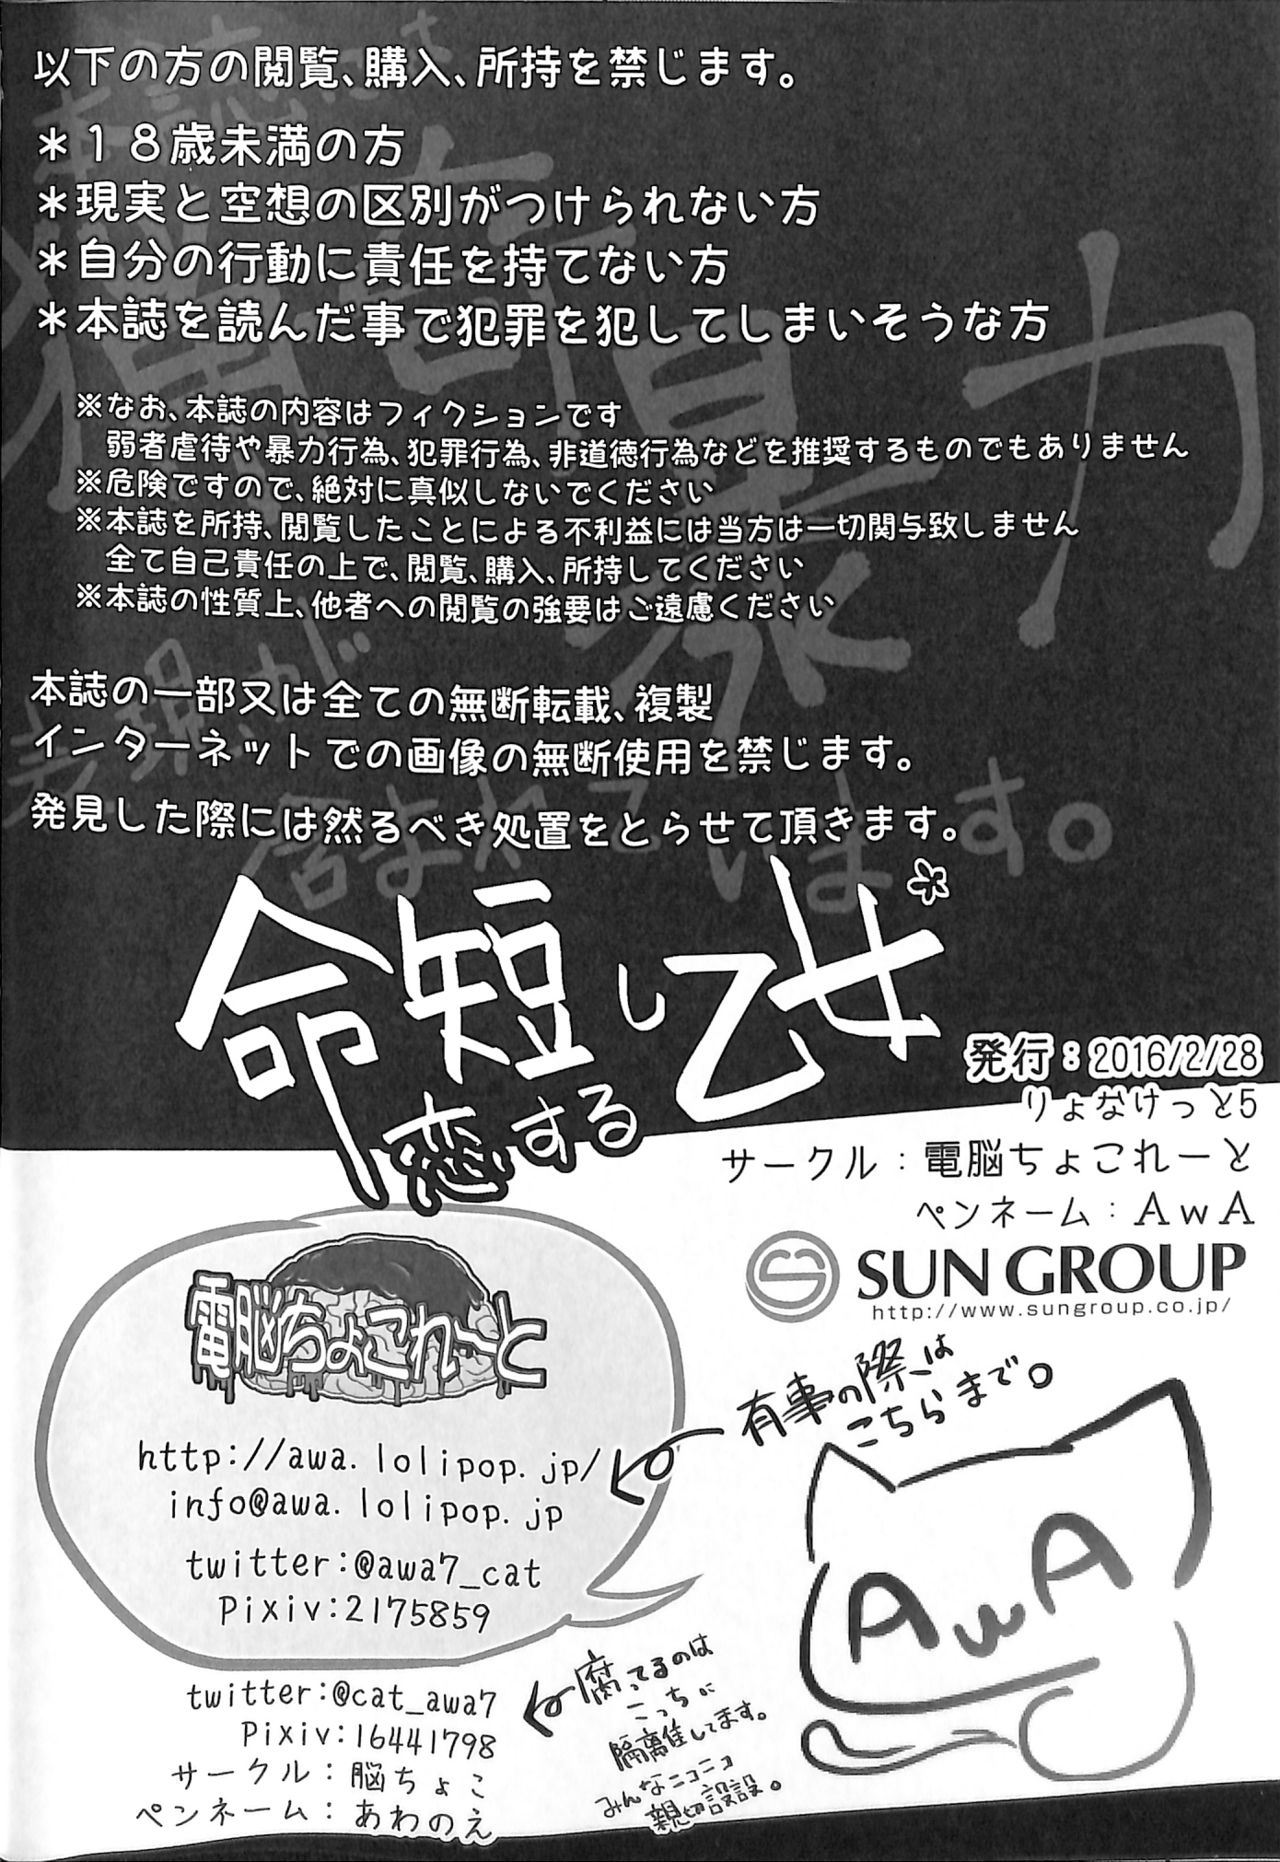 以下の方の閲覧、購入、所持を禁じます。
＊１８歳未満の方
＊現実と空想の区別がつけられない方
＊自分の行動に責任を持てない方
＊本誌を読んだ事で犯罪を犯してしまいそうな方
※なお、本誌の内容はフィクションです
弱者虐待や暴力行為、犯罪行為、非道徳行為などを推奨するものでもありません
※危険ですので、絶対に真似しないでください
※本誌を所持、閲覧したことによる不利益には当方は一切関与致しません
全て自己責任の上で、閲覧、購入、所持してください
※本誌の性質上、他者への閲覧の強要はご遠慮ください
本誌の一部又は全ての無断転載、複製
インターネットでの画像の無断使用を禁じます。
発見した際には然るべき処置をとらせて頂きます。
本誌には
猟奇暴力
表現が
含まれています。
命短し
恋する
乙女
発行：2016/2/28
りょなけっと5
サークル：電脳ちょこれーと
ペンネーム：AwA
SUN GROUP
http://www.sungroup.co.jp/
電脳ちょこれーと
有事の際は
こちらまで。
http://awa.lolipop.jp/
info@awa.lolipop.jp
twitter:@awa7_cat
Pixiv:2175859
AwA
腐ってるのは
こっちに
隔離隹してます。
みんなニコニコ
親切設設。
twitter:@cat_awa7
Pixiv:16441798
サークル：脳ちょこ
ペンネーム：あわのえ